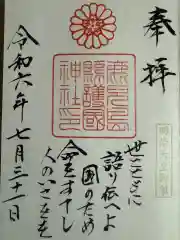 奉拝
鹿児島
縣護國
神社印
世とともに
語り伝へよ
国のため
命をすてし
人のいさをを
令和六年七月三十一日